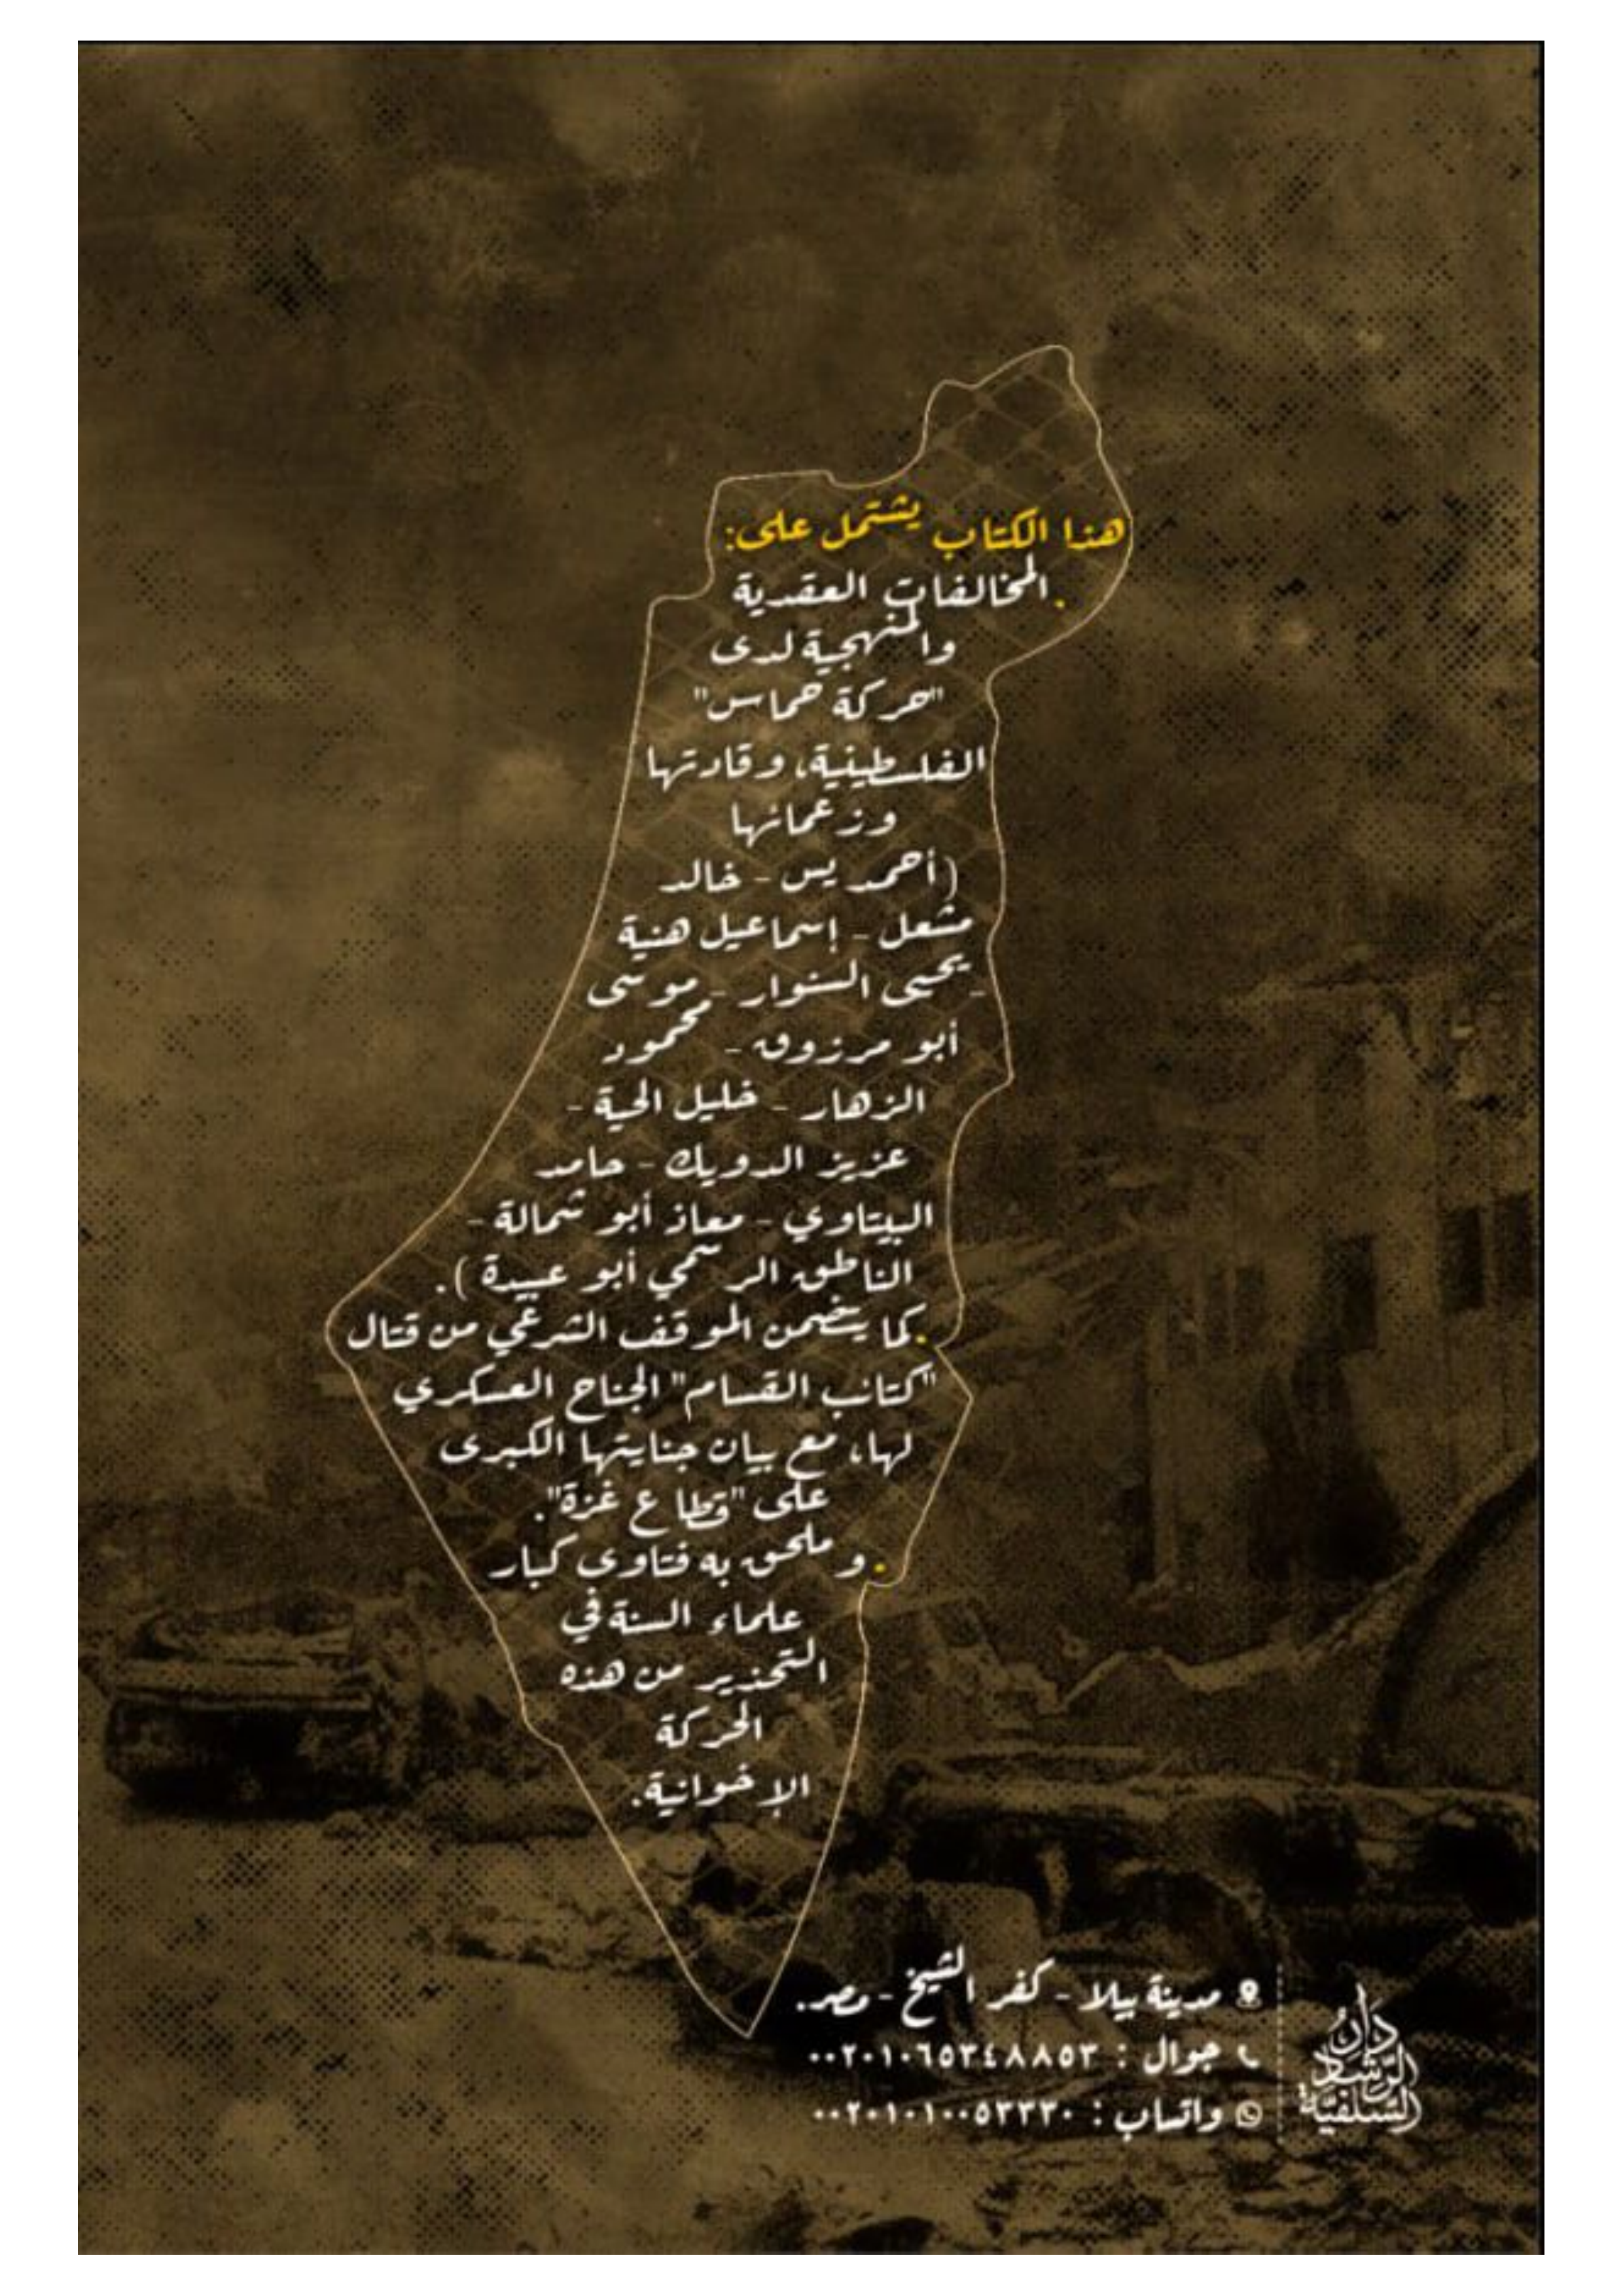 هذا الكتاب يشتمل على:
. المخالفات العقدية
والمنهجية لدى
"حركة حماس"
الفلسطينية، وقادتها
وزعمائها
(أحمد يس - خالد
مشعل - إسماعيل هنية
- يحيى السنوار - موسى
أبو مرزوق - محمود
الزهار - خليل الحية -
عزيز الدويك - حامد
البيتاوي - معاذ أبو شمالة -
الناطق الرسمي أبو عبيدة ).
. كما يتضمن الموقف الشرعي من قتال
"كتائب القسام" الجناح العسكري
لها، مع بيان جنايتها الكبرى
على "قطاع غزة".
. و ملحق به فتاوى كبار
علماء السنة في
التحذير من هذه
الحركة
الإخوانية.
مدينة بيلا - كفر الشيخ - مصر.
جوال : ٠٠٢٠١٠٦٥٣٤٨٨٥٣
واتساب : ٠٠٢٠١٠١٠٠٥٣٣٣٠
دار
الرشاد
السلفية